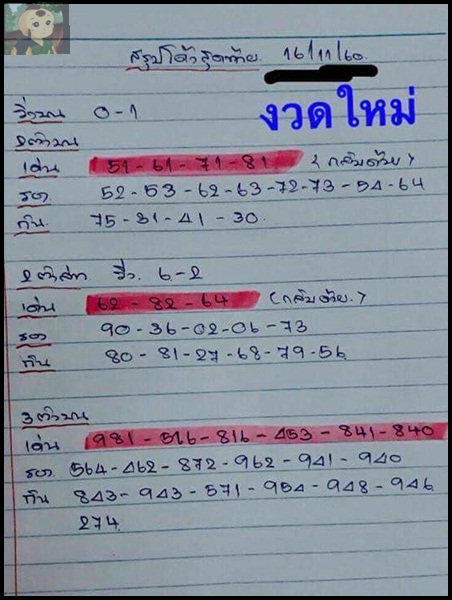 สรุปโค้งสุดท้าย. 16/11/60.
งวดใหม่
วิ่งบน 0-1
2ตัวบน
เด่น 51-61-71-81 (กลับด้วย)
รอง 52-53-62-63-72-73-54-64
กัน 75-31-41-30.
2ตัวล่าง วิ่ง. 6-2
เด่น 62-82-64 (กลับด้วย.)
รอง 90-36-02-06-73
กัน 80-81-27-68-79-56
3ตัวบน
เด่น 981-516-816-453-841-840
รอง 564-462-872-962-941-940
กัน 843-943-571-954-948-946
274